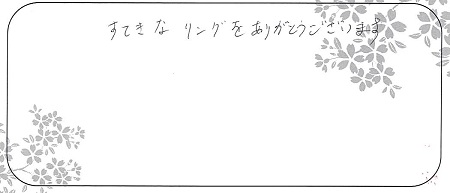 すてきな リングをありがとうございます